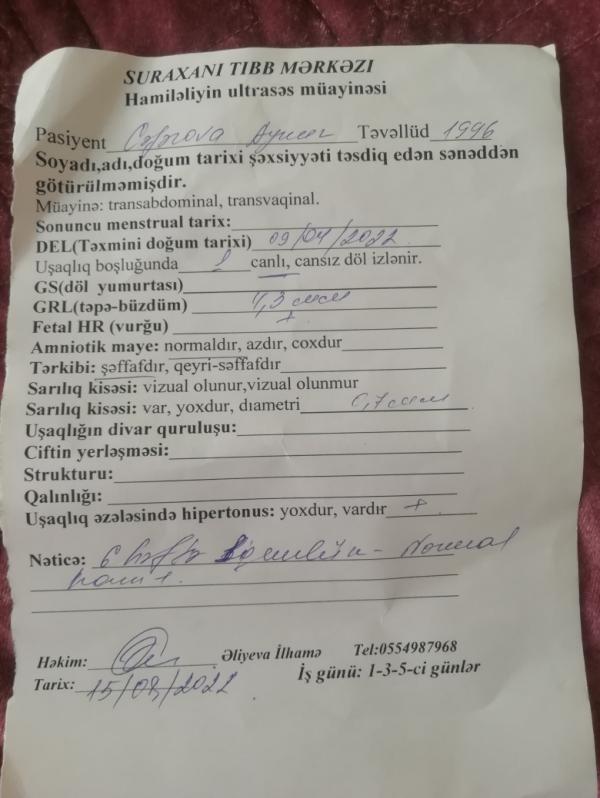 SURAXANI TIBB MƏRKƏZI
Hamiləliyin ultrasəs müayinəsi
Pasiyent Cəfərova Aynur Təvəllüd 1996
Soyadı,adı,doğum tarixi şəxsiyyəti təsdiq edən sənəddən
götürülməmişdir.
Müayinə: transabdominal, transvaqinal.
Sonuncu menstrual tarix:
DEL(Təxmini doğum tarixi) 09/04/2022
Uşaqlıq boşluğunda 1 canlı, cansız döl izlənir.
GS(döl yumurtası)
GRL(təpə-büzdüm) 4,3 mm
Fetal HR (vurğu) +
Amniotik maye: normaldır, azdır, coxdur
Tərkibi: şəffafdır, qeyri-səffafdır
Sarılıq kisəsi: vizual olunur,vizual olunmur
Sarılıq kisəsi: var, yoxdur, dıametri
Uşaqlığın divar quruluşu:
Ciftin yerləşməsi:
Strukturu:
Qalınlığı:
Uşaqlıq əzələsində hipertonus: yoxdur, vardır +
Nəticə: 6 həftə - Normal
Həkim: Əliyeva İlhamə Tel:0554987968
İş günü: 1-3-5-ci günlər
Tarix: 15/08/2022